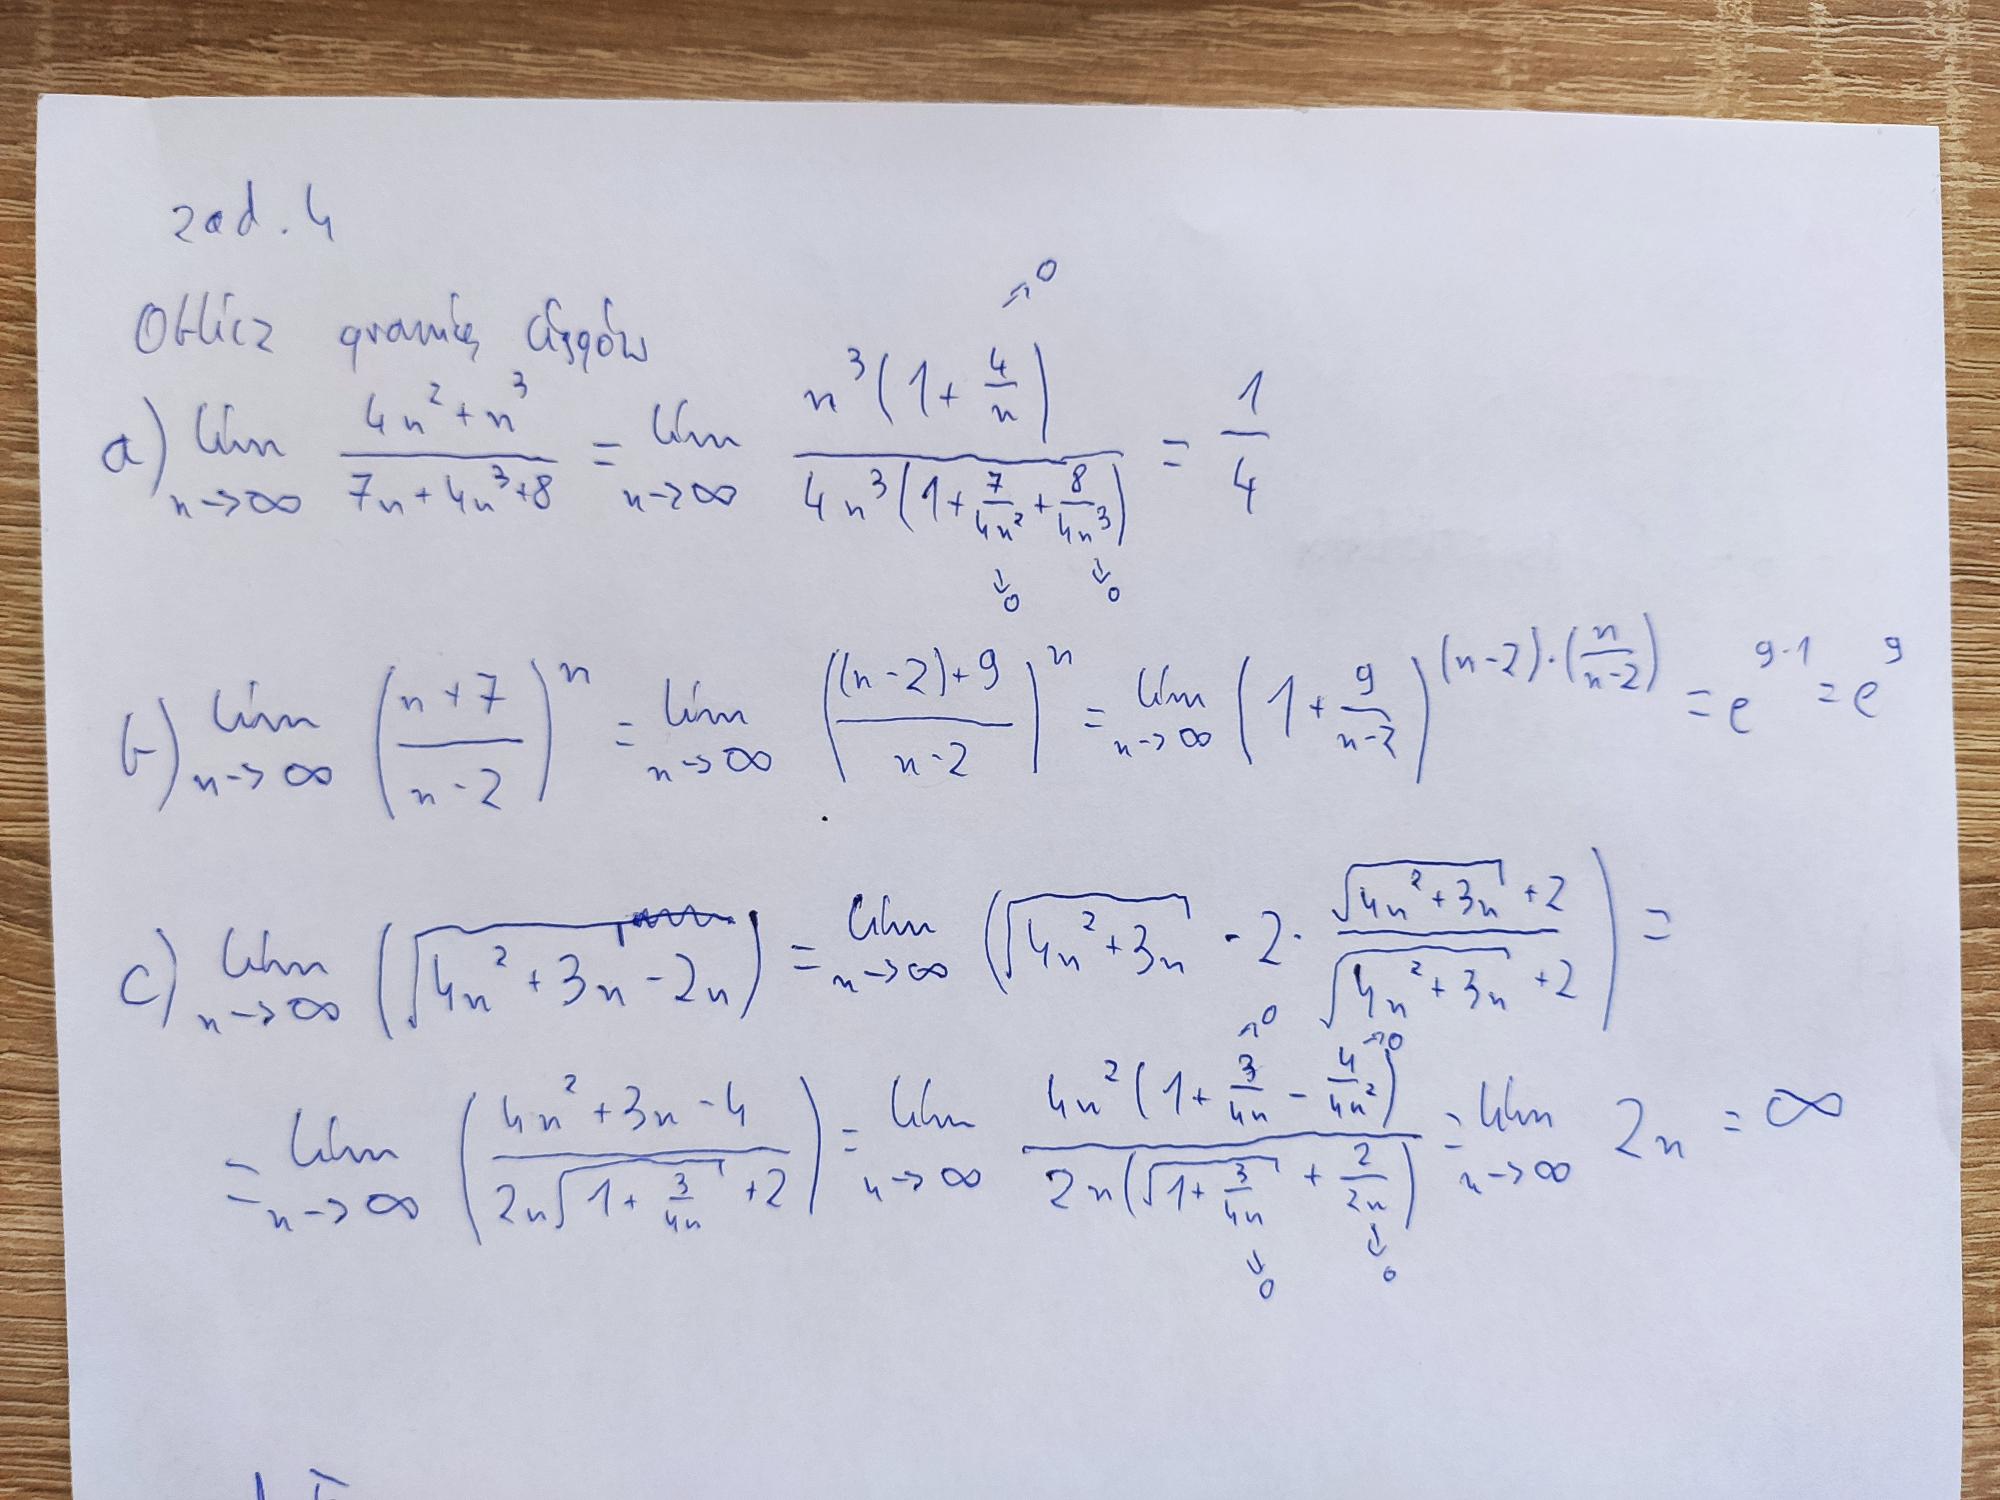 zad. 4
Oblicz granicę ciągów
a) lim n→∞ (4n² + n³)/(7n + 4n³ + 8) = lim n→∞ (n³(1 + 4/n))/(4n³(1 + 7/4n² + 8/4n³)) = 1/4
b) lim n→∞ ((n+7)/(n-2))ⁿ = lim n→∞ (((n-2)+9)/(n-2))ⁿ = lim n→∞ (1 + 9/(n-2))^((n-2)·(n/(n-2))) = e^(9·1) = e⁹
c) lim n→∞ (√(4n² + 3n) - 2n) = lim n→∞ (√(4n² + 3n) - 2 · (√(4n² + 3n) + 2)/(√(4n² + 3n) + 2)) =
= lim n→∞ ((4n² + 3n - 4)/(2n√(1 + 3/4n) + 2)) = lim n→∞ (4n²(1 + 3/4n - 4/4n²))/(2n(√(1 + 3/4n) + 2/2n)) = lim n→∞ 2n = ∞